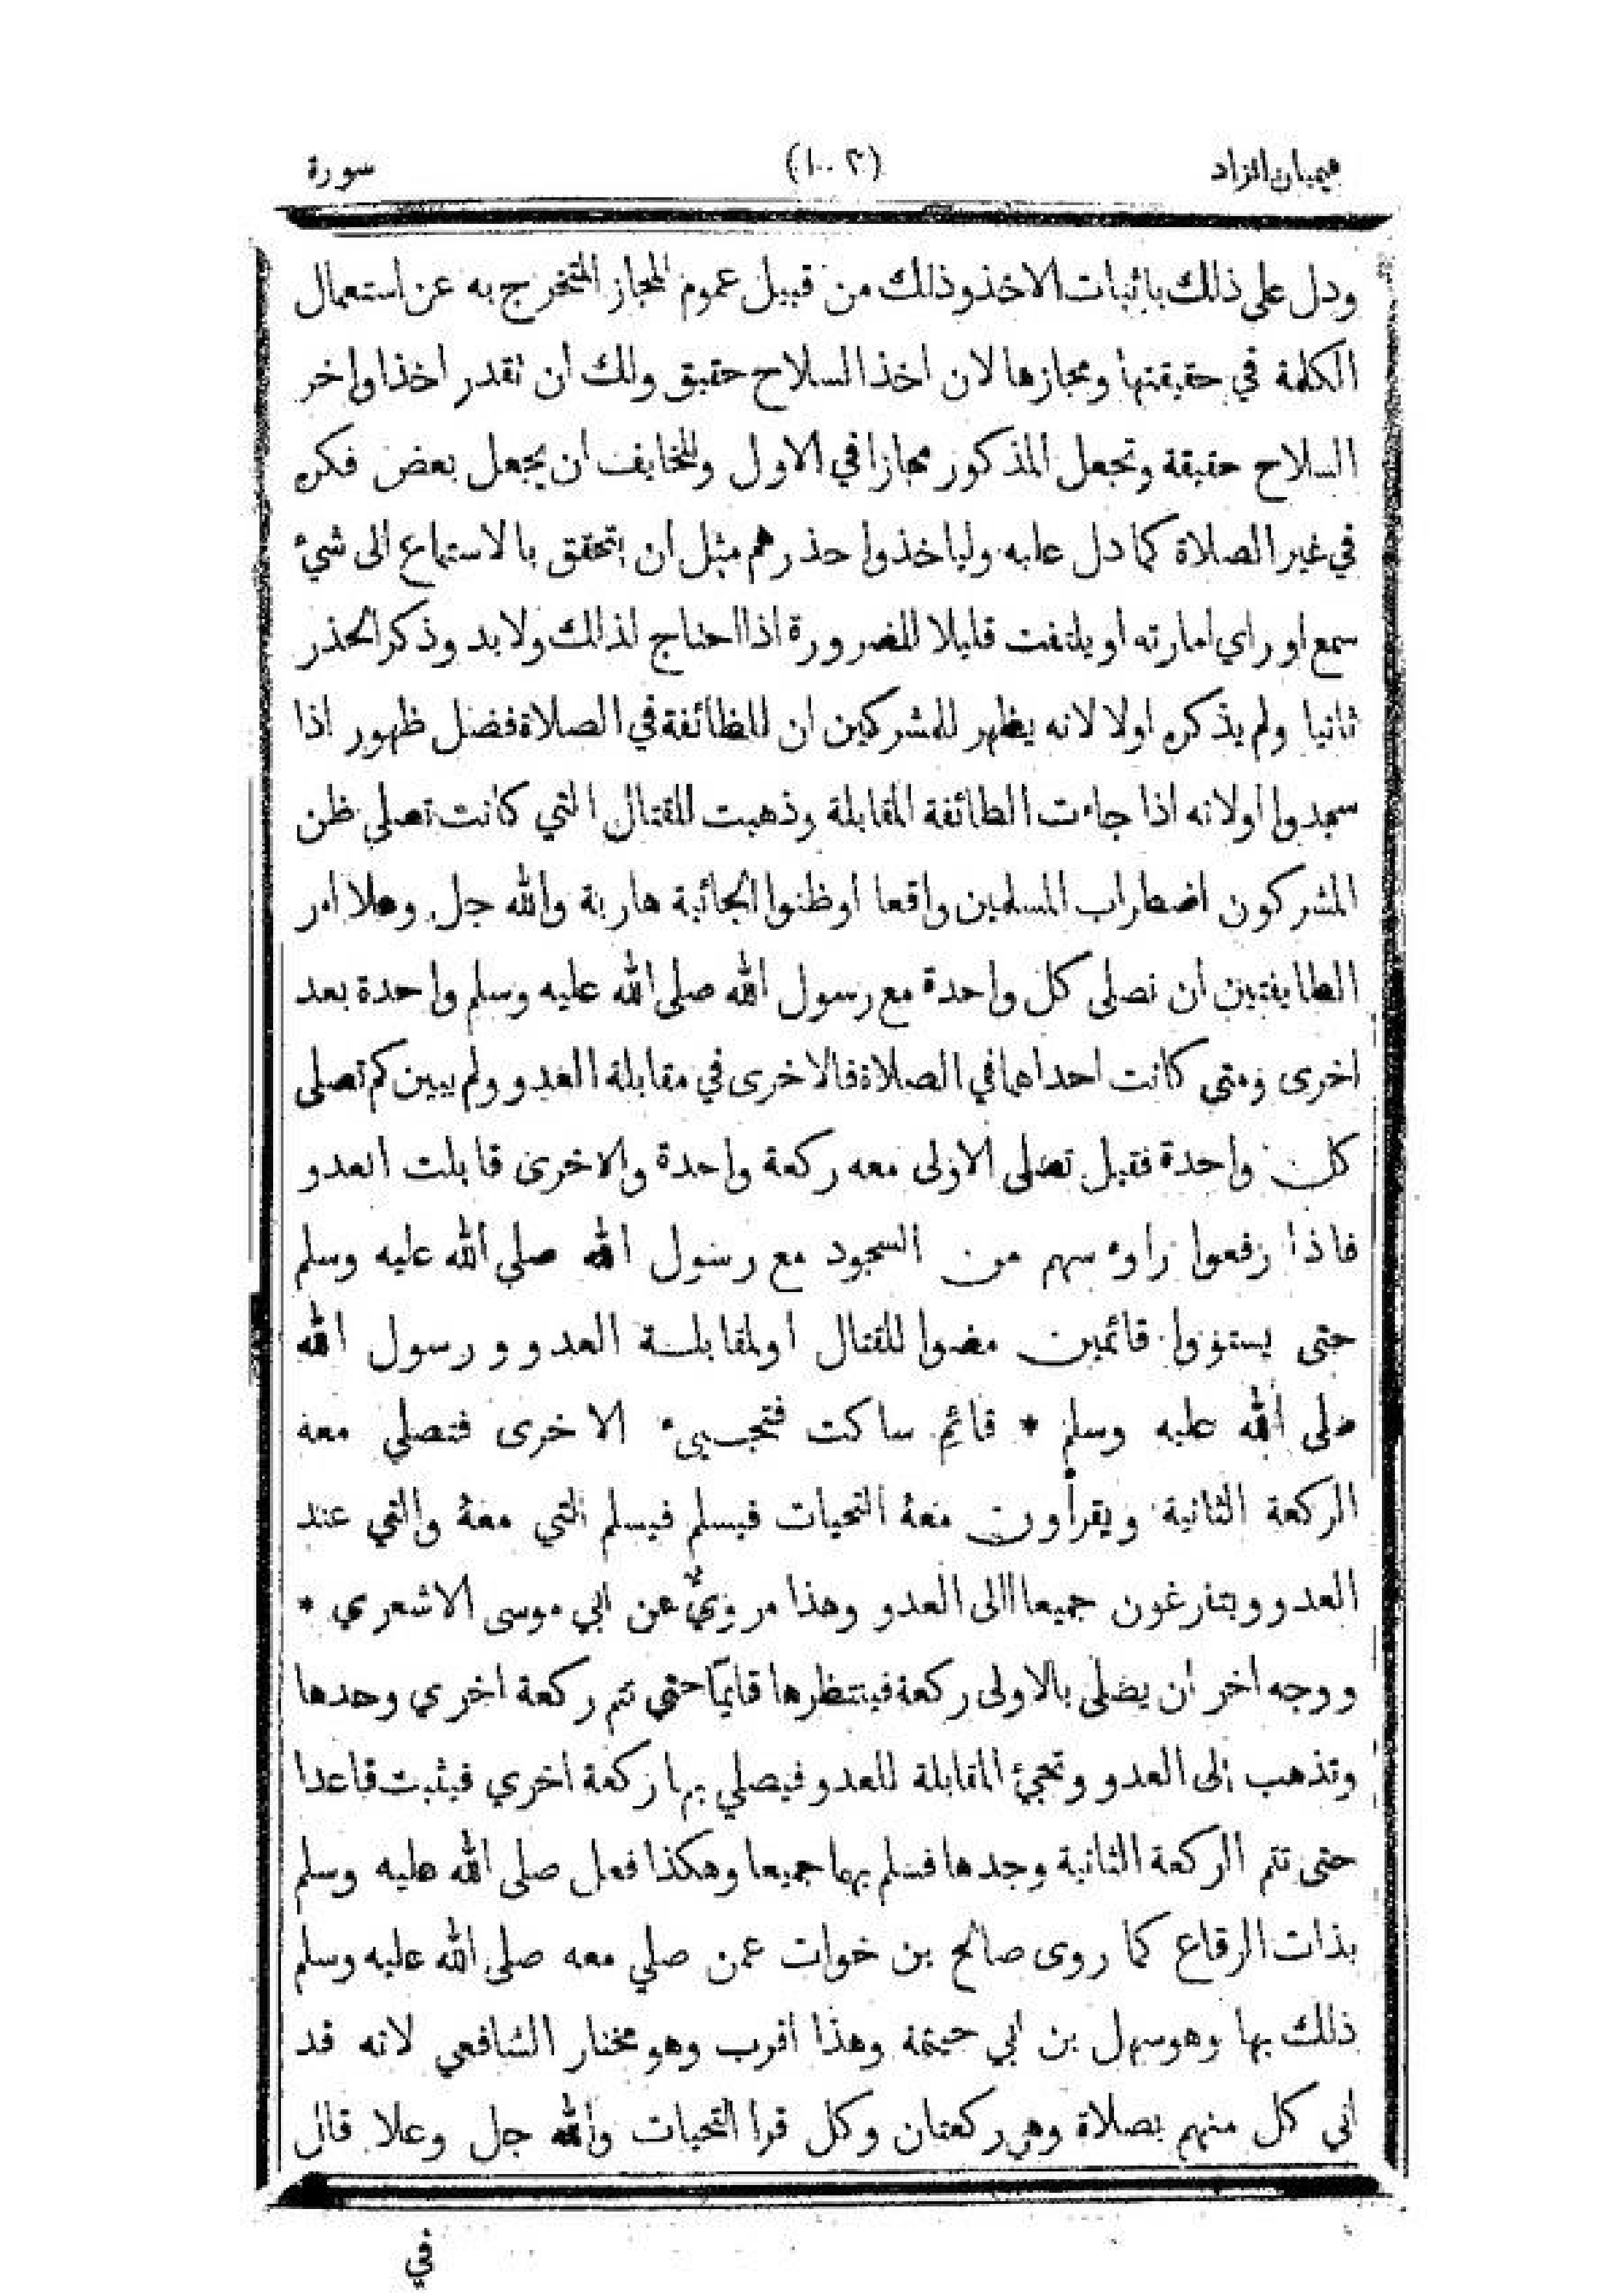 هيميان الزاد (١٠٠٢) سورة
ودل على ذلك باثبات الاخذ وذلك من قبيل عموم المجاز المتخرج به عن استعمال
الكلمة في حقيقتها ومجازها لان اخذ السلاح حقيق ولك ان تقدر اخذا واخر
السلاح حقيقة وتجعل المذكور مجازا في الاول وللخايف ان يجعل بعض فكره
في غير الصلاة كما دل عليه ولياخذوا حذرهم مثل ان يتحقق بالاستماع الى شيئ
سمع او راي امارته او يلتفت قليلا للضرورة اذا احتاج لذلك ولا بد وذكر الحذر
ثانيا ولم يذكره اولا لانه يظهر للمشركين ان للطائفة في الصلاة فضل ظهور اذا
سجدوا اولانه اذا جاءت الطائفة المقابلة وذهبت للقتال التي كانت تصلي ظن
المشركون اضطراب المسلمين واقعا او ظنوا الجائية هاربة والله جل وعلا امر
الطايفتين ان تصلى كل واحدة مع رسول الله صلى الله عليه وسلم واحدة بعد
اخرى ومتى كانت احداهما في الصلاة فالاخرى في مقابلة العدو ولم يبين كم تصلى
كل واحدة فقيل تصلى الاولى معه ركعة واحدة والاخرى قابلت العدو
فاذا رفعوا راوءسهم من السجود مع رسول الله صلى الله عليه وسلم
حتى يستووا قائمين مضوا للقتال اولمقابلة العدو ورسول الله
صلى الله عليه وسلم * قائم ساكت فتجيىء الاخرى فتصلي معه
الركعة الثانية ويقرأون معه التحيات فيسلم فيسلم التي معه والتي عند
العدو ويتفرغون جميعا الى العدو وهذا مروي عن ابي موسى الاشعري *
ووجه اخر ان يصلى بالاولى ركعة فينتظرها قايما حتى تتم ركعة اخري وحدها
وتذهب إلى العدو وتجيئ المقابلة للعدو فيصلي بها ركعة اخري فيثبت قاعدا
حتى تتم الركعة الثانية وحدها فسلم بهما جميعا وهكذا فعل صلى الله عليه وسلم
بذات الرقاع كما روى صالح بن خوات عمن صلي معه صلى الله عليه وسلم
ذلك بها وهو سهل بن ابي حيثمة وهذا اقرب وهو مختار الشافعي لانه قد
اتي كل منهم بصلاة وهي ركعتان وكل قرا التحيات والله جل وعلا قال
في